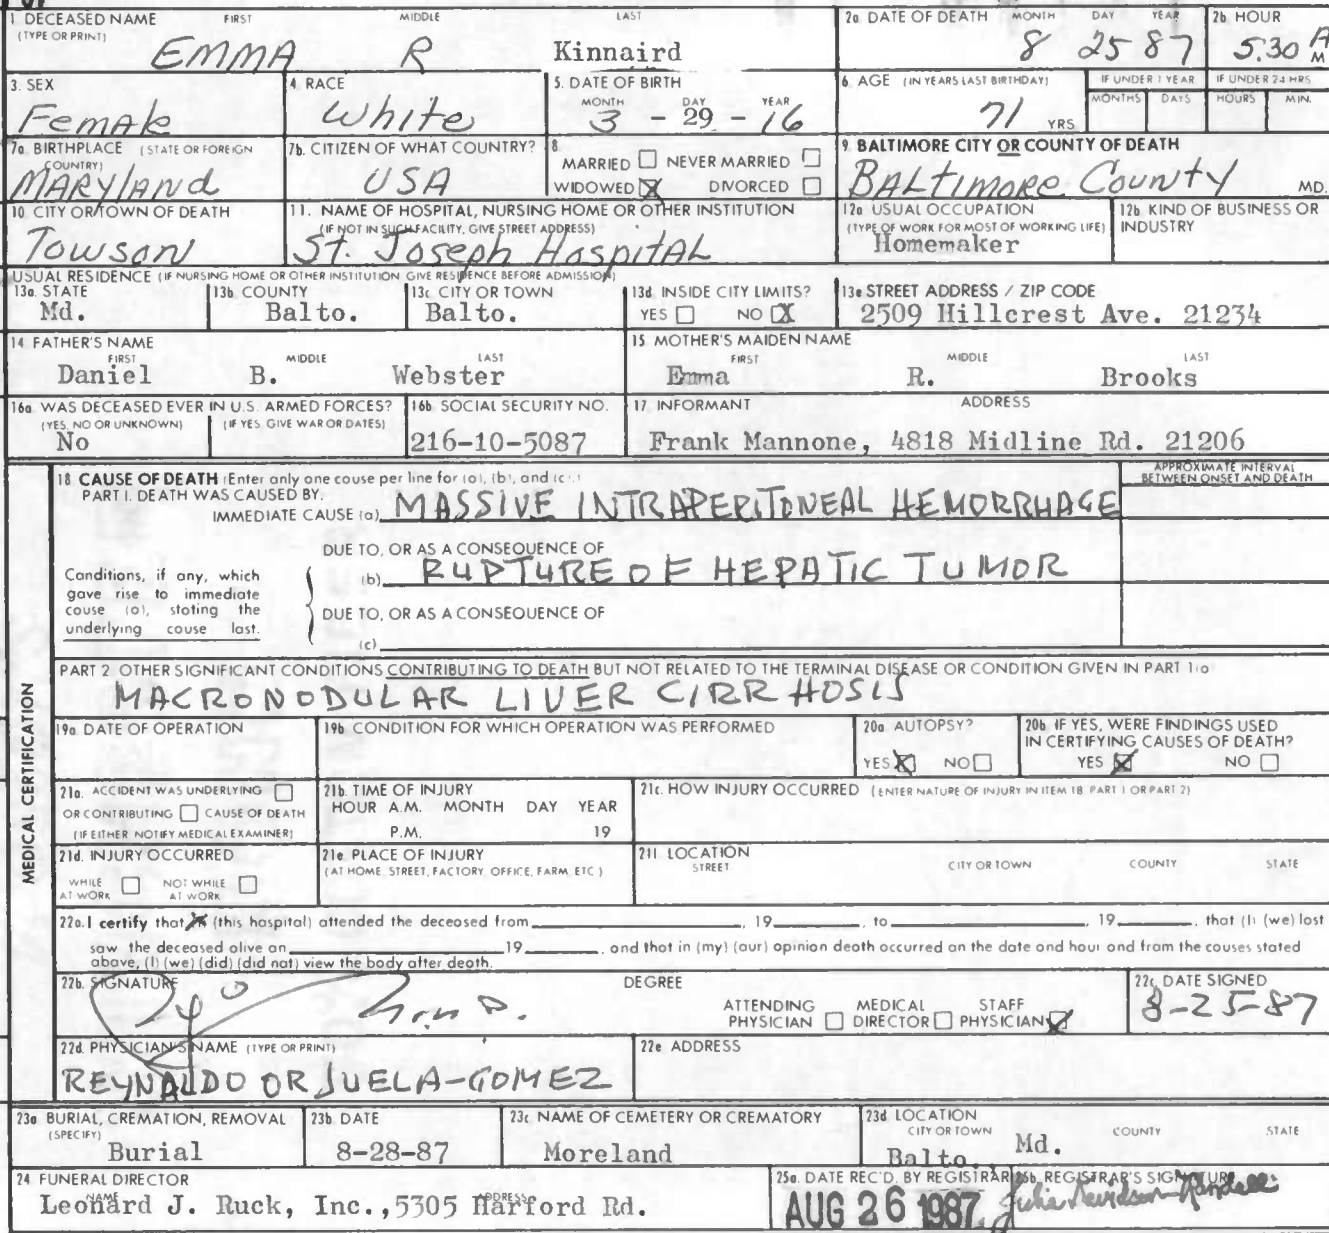 1 DECEASED NAME FIRST MIDDLE LAST
(TYPE OR PRINT)
EMMA R Kinnaird
2a DATE OF DEATH MONTH DAY YEAR
8 25 87
2b HOUR
5.30 A M
3. SEX
Female
4. RACE
White
5. DATE OF BIRTH
MONTH DAY YEAR
3 - 29 - 16
6. AGE (IN YEARS LAST BIRTHDAY)
71 YRS
IF UNDER 1 YEAR
MONTHS DAYS
IF UNDER 24 HRS
HOURS MIN.
7a BIRTHPLACE (STATE OR FOREIGN
COUNTRY)
MARYLAND
7b. CITIZEN OF WHAT COUNTRY?
USA
8
MARRIED NEVER MARRIED
WIDOWED X DIVORCED
9. BALTIMORE CITY OR COUNTY OF DEATH
BALTIMORE COUNTY MD.
10 CITY OR TOWN OF DEATH
Towson
11. NAME OF HOSPITAL, NURSING HOME OR OTHER INSTITUTION
(IF NOT IN SUCH FACILITY, GIVE STREET ADDRESS)
St. Joseph Hospital
12a USUAL OCCUPATION
(TYPE OF WORK FOR MOST OF WORKING LIFE)
Homemaker
12b KIND OF BUSINESS OR
INDUSTRY
USUAL RESIDENCE (IF NURSING HOME OR OTHER INSTITUTION GIVE RESIDENCE BEFORE ADMISSION)
13a. STATE
Md.
13b COUNTY
Balto.
13c CITY OR TOWN
Balto.
13d. INSIDE CITY LIMITS?
YES NO X
13e STREET ADDRESS / ZIP CODE
2509 Hillcrest Ave. 21234
14 FATHER'S NAME
FIRST MIDDLE LAST
Daniel B. Webster
15 MOTHER'S MAIDEN NAME
FIRST MIDDLE LAST
Emma R. Brooks
16a WAS DECEASED EVER IN U.S. ARMED FORCES?
(YES, NO OR UNKNOWN) (IF YES, GIVE WAR OR DATES)
No
16b SOCIAL SECURITY NO.
216-10-5087
17 INFORMANT ADDRESS
Frank Mannone, 4818 Midline Rd. 21206
MEDICAL CERTIFICATION
18 CAUSE OF DEATH (Enter only one cause per line for (a), (b), and (c).)
PART I. DEATH WAS CAUSED BY:
IMMEDIATE CAUSE (a) MASSIVE INTRAPERITONEAL HEMORRHAGE
APPROXIMATE INTERVAL
BETWEEN ONSET AND DEATH
Conditions, if any, which
gave rise to immediate
cause (a), stating the
underlying cause last.
DUE TO, OR AS A CONSEQUENCE OF
(b) RUPTURE OF HEPATIC TUMOR
DUE TO, OR AS A CONSEQUENCE OF
(c)
PART 2 OTHER SIGNIFICANT CONDITIONS CONTRIBUTING TO DEATH BUT NOT RELATED TO THE TERMINAL DISEASE OR CONDITION GIVEN IN PART 1(a)
MACRONODULAR LIVER CIRRHOSIS
19a DATE OF OPERATION
19b CONDITION FOR WHICH OPERATION WAS PERFORMED
20a AUTOPSY?
YES X NO
20b IF YES, WERE FINDINGS USED
IN CERTIFYING CAUSES OF DEATH?
YES X NO
21a. ACCIDENT WAS UNDERLYING
OR CONTRIBUTING CAUSE OF DEATH
(IF EITHER NOTIFY MEDICAL EXAMINER)
21b. TIME OF INJURY
HOUR A.M. MONTH DAY YEAR
P.M. 19
21c. HOW INJURY OCCURRED (ENTER NATURE OF INJURY IN ITEM 18 PART 1 OR PART 2)
21d. INJURY OCCURRED
WHILE AT WORK NOT WHILE AT WORK
21e PLACE OF INJURY
(AT HOME, STREET, FACTORY, OFFICE, FARM, ETC)
21f LOCATION
STREET CITY OR TOWN COUNTY STATE
22a. I certify that (this hospital) attended the deceased from , 19 , to , 19 , that (I) (we) last
saw the deceased alive on 19 , and that in (my) (our) opinion death occurred on the date and hour and from the causes stated
above, (I) (we) (did) (did not) view the body after death.
22b. SIGNATURE DEGREE
ATTENDING PHYSICIAN MEDICAL DIRECTOR STAFF PHYSICIAN X
22c. DATE SIGNED
8-25-87
22d. PHYSICIAN'S NAME (TYPE OR PRINT)
REYNALDO ORJUELA-GOMEZ
22e ADDRESS
23a BURIAL, CREMATION, REMOVAL
(SPECIFY)
Burial
23b DATE
8-28-87
23c NAME OF CEMETERY OR CREMATORY
Moreland
23d LOCATION
CITY OR TOWN COUNTY STATE
Balto., Md.
24 FUNERAL DIRECTOR
NAME ADDRESS
Leonard J. Ruck, Inc., 5305 Harford Rd.
25a. DATE REC'D. BY REGISTRAR
AUG 26 1987
25b. REGISTRAR'S SIGNATURE
Julia Davidson-Randall